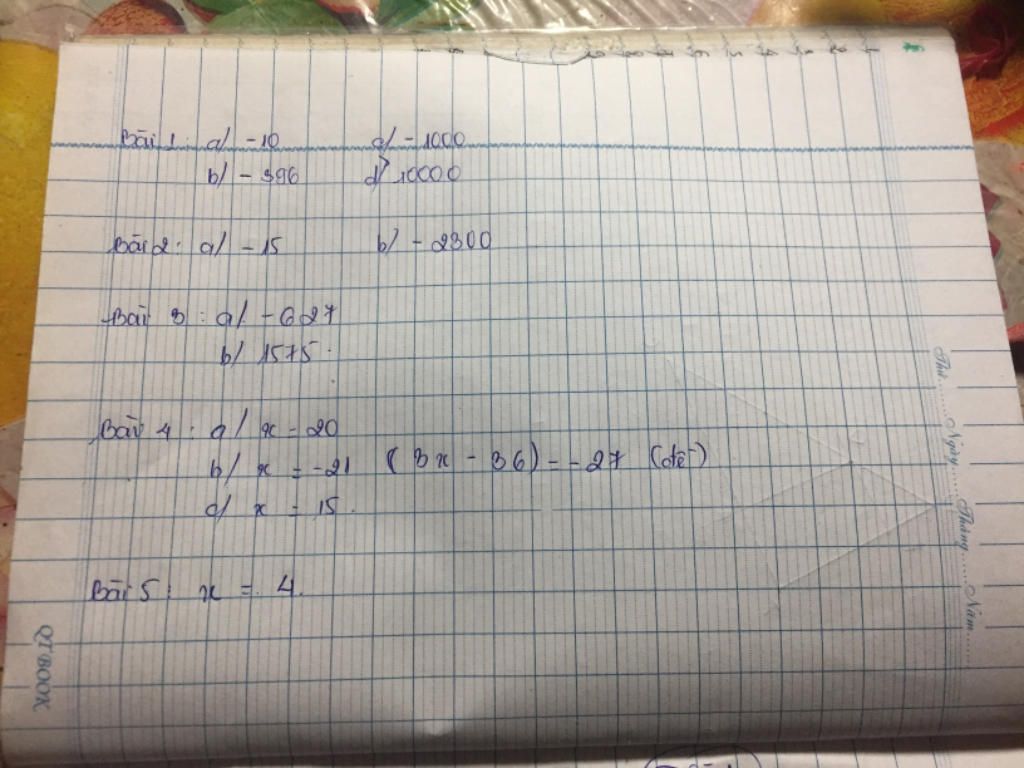 Bài 1: a/ -10 c/ -1000
b/ -396 d/ 10000
Bài 2: a/ -15 b/ -2300
Bài 3: a/ -627
b/ 1575.
Bài 4: a/ x = 20
b/ x = -21 (3x - 36) = -27 (đề)
c/ x = 15.
Bài 5: x = 4.
Thứ......Ngày......Tháng......Năm......
QT BOOK